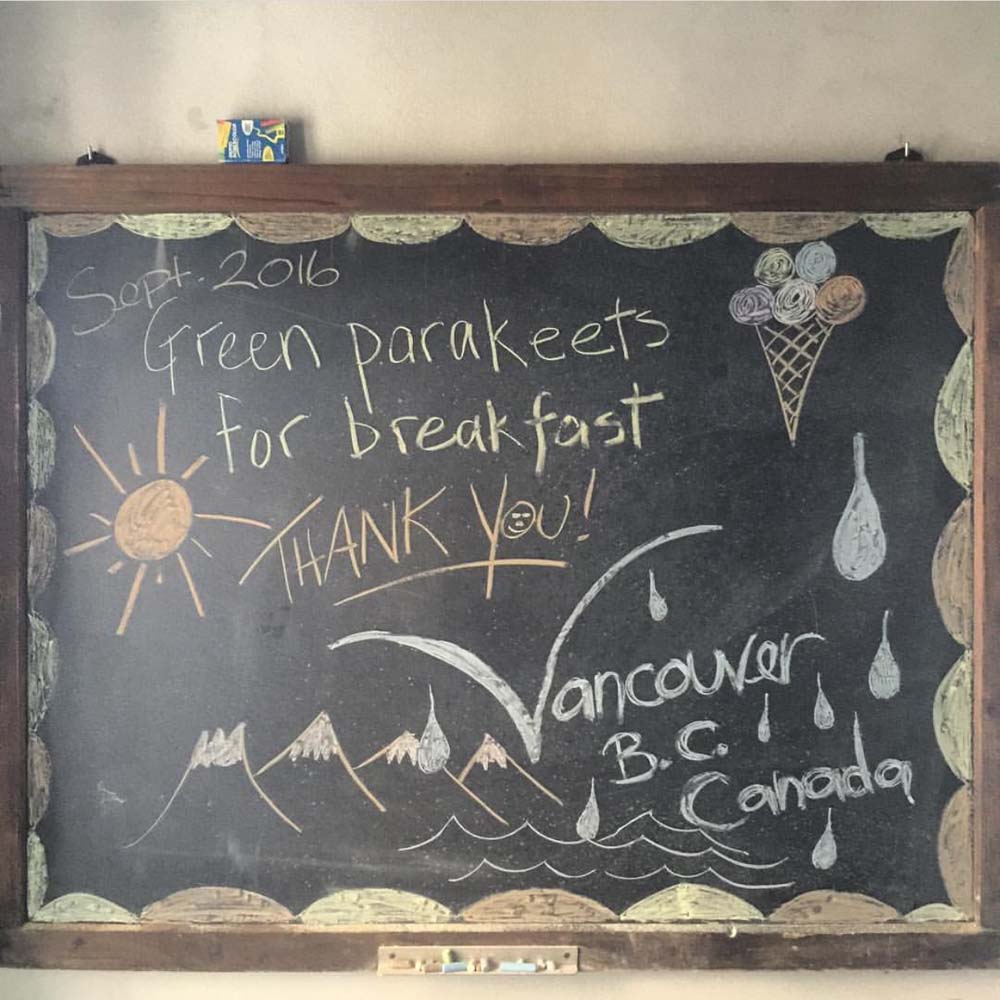 Sept. 2016
Green parakeets
for breakfast
THANK YOU!
Vancouver
B.C.
Canada